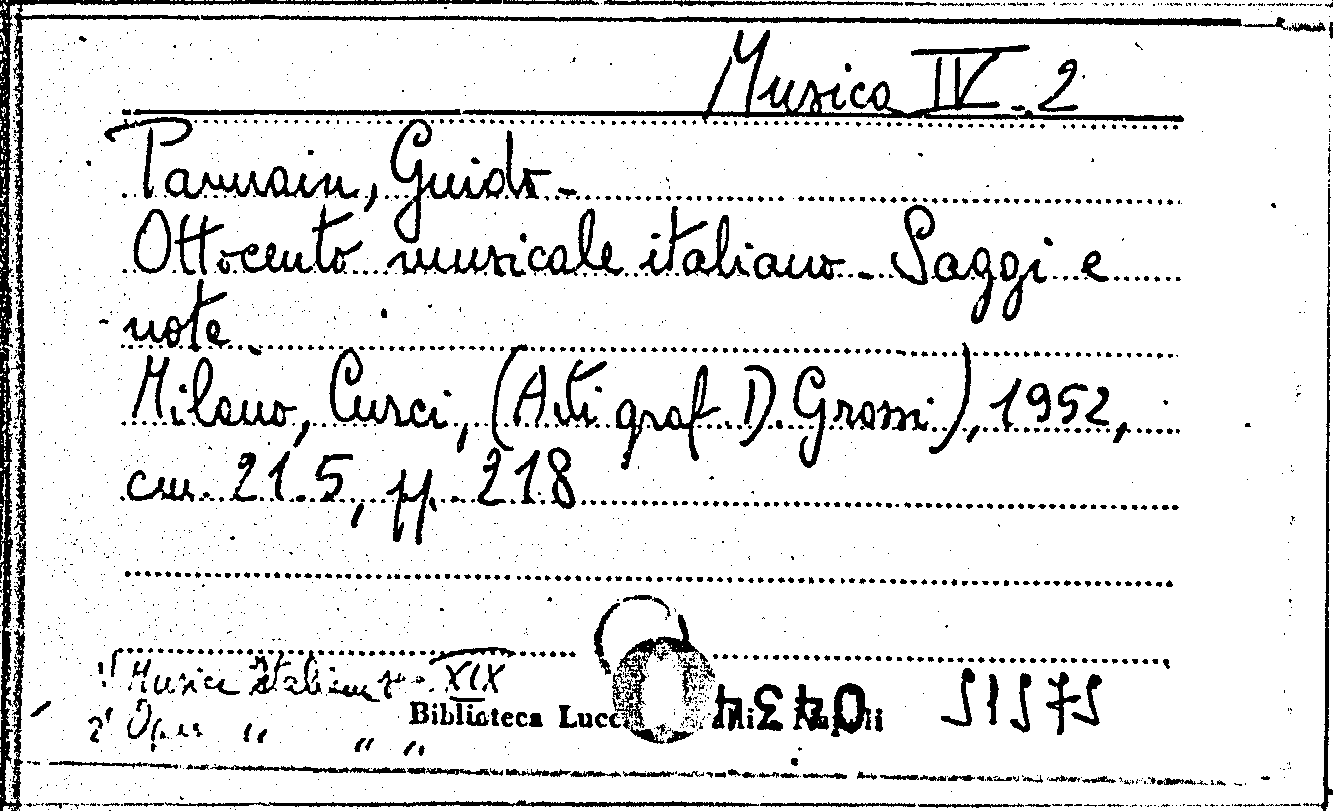 Musica IV. 2
Pannain, Guido-
Ottocento musicale italiano- Saggi e
note.
Milano, Curci, (Arti graf. D. Grossi), 1952,
cm. 21.5, pp. 218
1) Musica Italiana XIX
2) Opera " " "
Biblioteca Lucc Napoli
51575